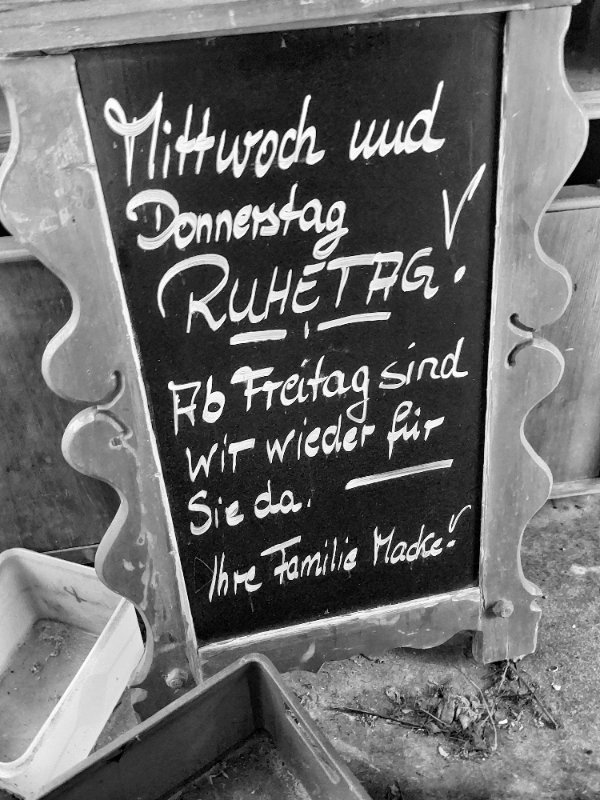 Mittwoch und
Donnerstag
RUHETAG!
Ab Freitag sind
wir wieder für
Sie da.
Ihre Familie Macke!